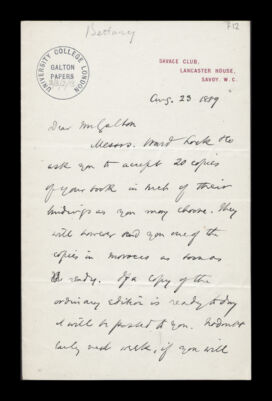 Bettany
712
UNIVERSITY COLLEGE LONDON
GALTON
PAPERS
SAVAGE CLUB,
LANCASTER HOUSE,
SAVOY. W.C.
Aug. 23 1889
Dear Mr Galton
Messrs. Ward Lock & Co
ask you to accept 20 copies
of your book in such of their
bindings as you may choose. They
will however send you one of the
copies in morocco as soon as
ready. If a copy of the
ordinary edition is ready today
it will be posted to you. No doubt
early next week, if you will